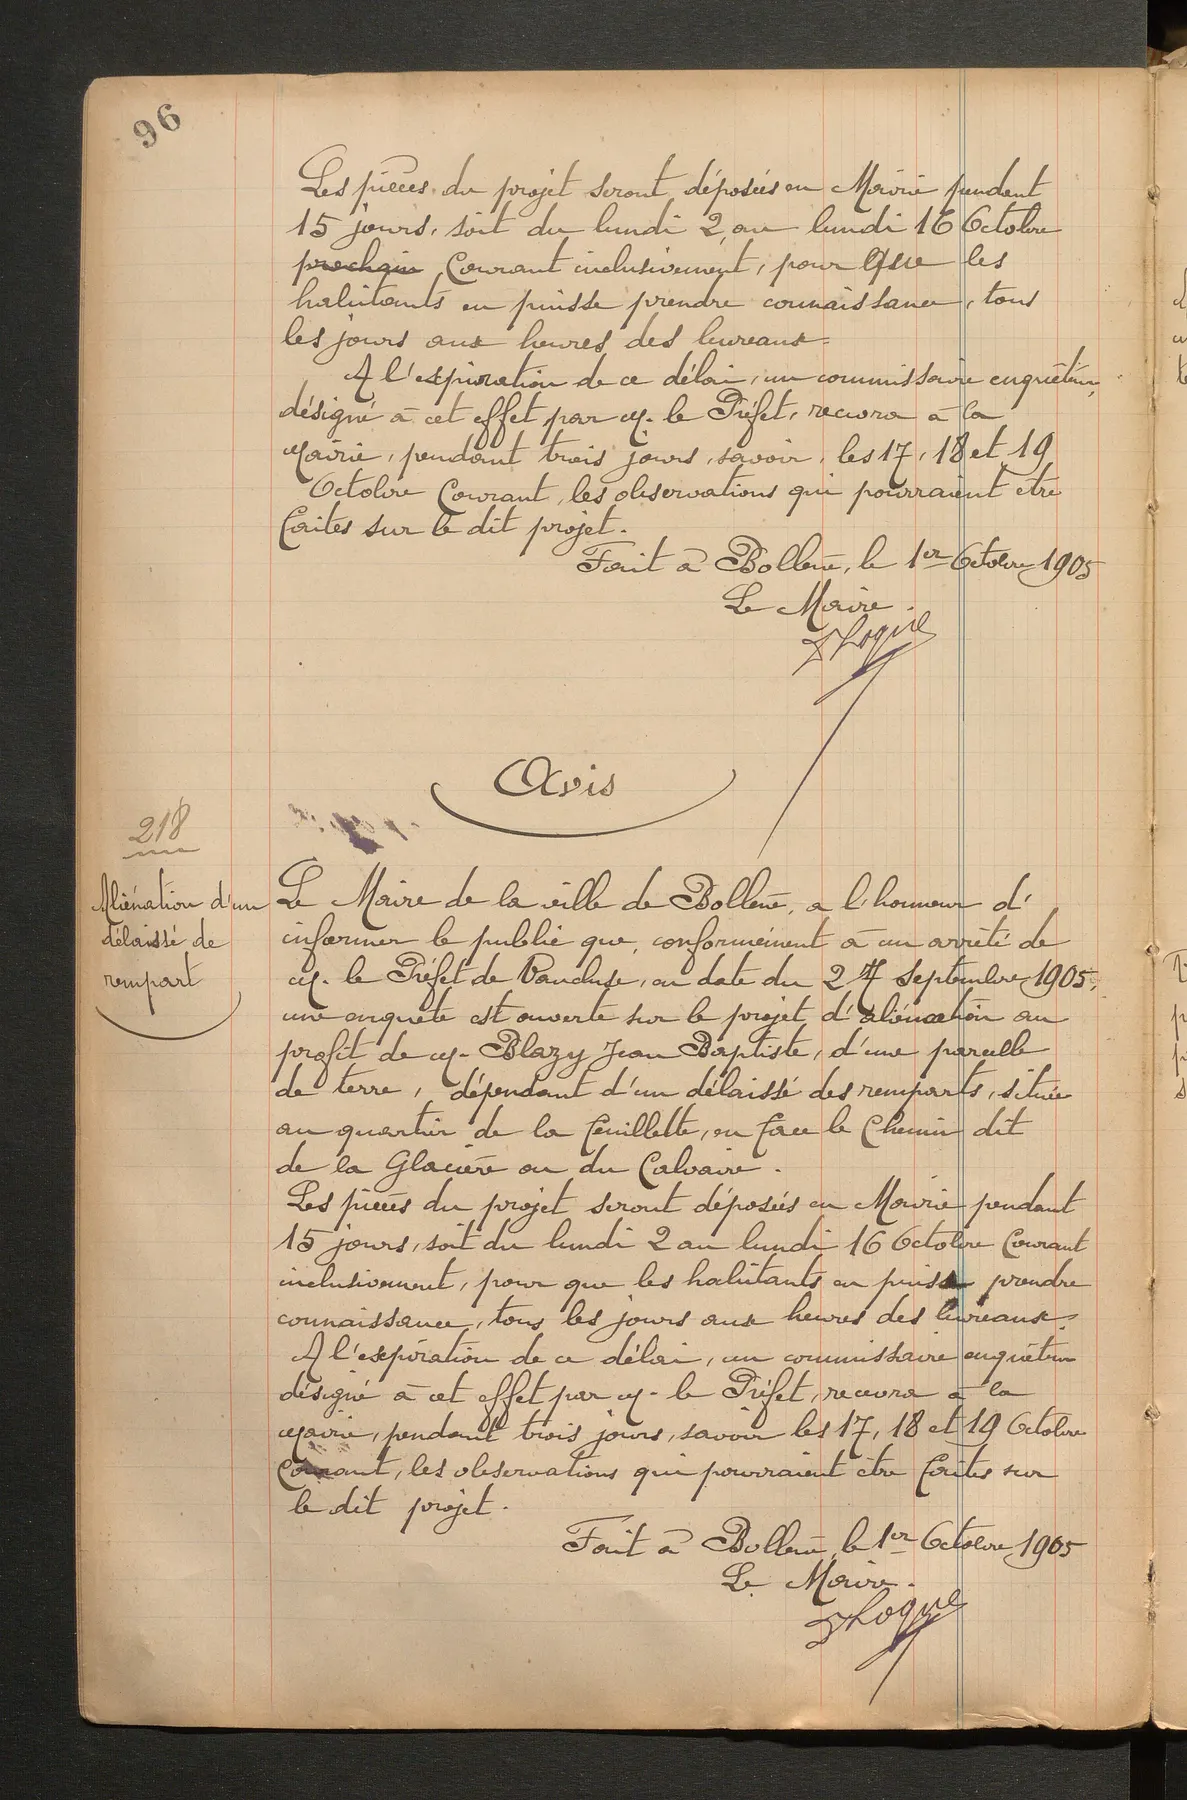 96
Les pièces du projet seront déposées en Mairie pendant
15 jours, soit du lundi 2 au lundi 16 Octobre
prochain Courant inclusivement, pour que les
habitants en puisse prendre connaissance, tous
les jours aux heures des bureaux.
A l'expiration de ce délai, un commissaire enquêteur,
désigné à cet effet par M. le Préfet, recevra à la
Mairie, pendant trois jours, savoir, les 17, 18 et 19
Octobre Courant, les observations qui pourraient être
faites sur le dit projet.
Fait à Bollène, le 1er Octobre 1905
Le Maire.
Avis
218
Aliénation d'un
délaissé de
rempart
Le Maire de la ville de Bollène, a l'honneur d'
informer le public que, conformément à un arrêté de
M. le Préfet de Vaucluse, en date du 27 Septembre 1905,
une enquête est ouverte sur le projet d'aliénation au
profit de M. Blazy Jean Baptiste, d'une parcelle
de terre, dépendant d'un délaissé des remparts, située
au quartier de la feuillette, en face le Chemin dit
de la Glacière ou du Calvaire.
Les pièces du projet seront déposées en Mairie pendant
15 jours, soit du lundi 2 au lundi 16 Octobre Courant
inclusivement, pour que les habitants en puisse prendre
connaissance, tous les jours aux heures des bureaux.
A l'expiration de ce délai, un commissaire enquêteur
désigné à cet effet par M. le Préfet, recevra à la
Mairie, pendant trois jours, savoir les 17, 18 et 19 Octobre
Courant, les observations qui pourraient être faites sur
le dit projet.
Fait à Bollène, le 1er Octobre 1905
Le Maire.